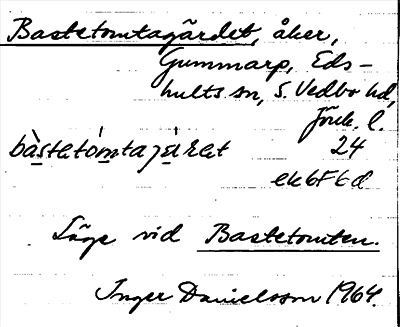 Bastetomtagärdet, åker,
Gummarp, Eds-
hults sn, S. Vedbo hd,
Jönk. l.
bàstetómtajæ̀ret 24
ek6F6d
Läge vid Bastetomten.
Inger Danielsson 1964.